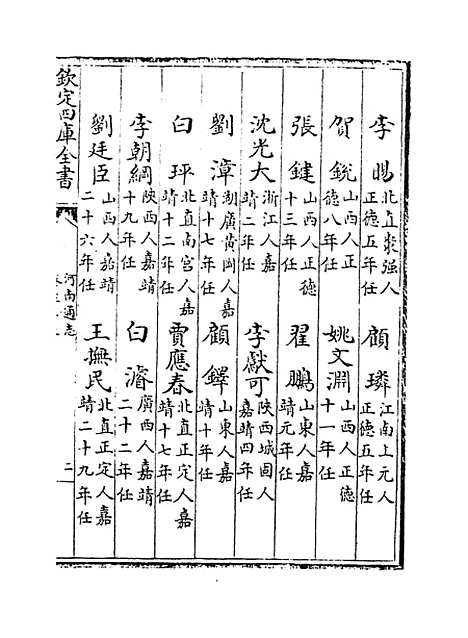 李𣆳北直棗强人正德五年任　顧璘江南上元人正德五年任
賀銳山西人正德八年任　姚文淵山西人正德十一年任
張鍵山西人正德十三年任　翟鵬山東人嘉靖元年任
沈光大浙江人嘉靖二年任　李獻可陝西城固人嘉靖四年任
劉漳湖廣黄岡人嘉靖十七年任　顧鐸山東人嘉靖十年任
白坪北直南宮人嘉靖十二年任　賈應春北直正定人嘉靖十七年任
李朝綱陝西人嘉靖十九年任　白濬廣西人嘉靖二十二年任
劉廷臣山西人嘉靖二十六年任　王撫民北直正定人嘉靖二十九年任
欽定四庫全書　河南通志　二